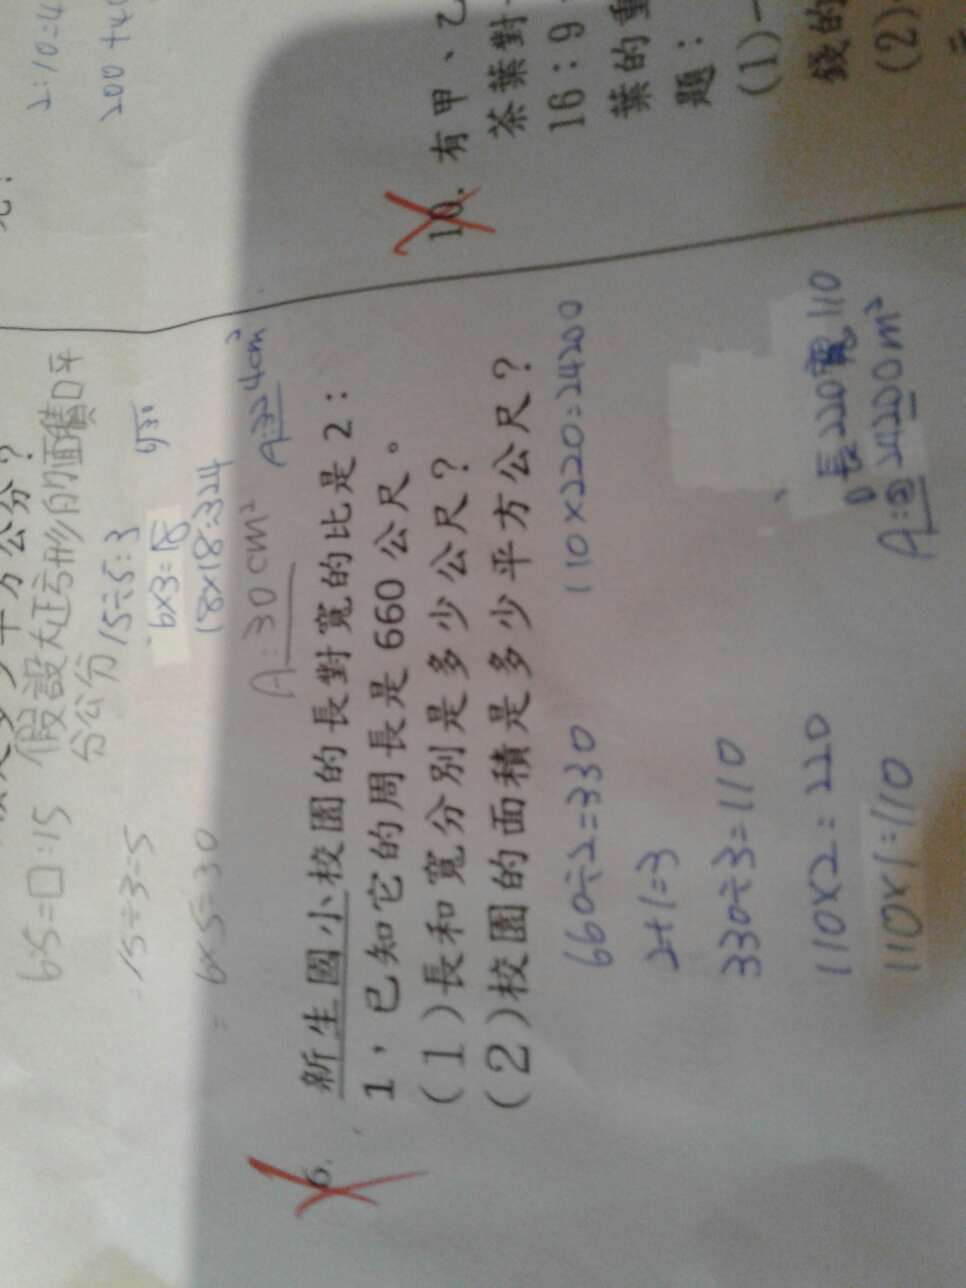 2:10=4
200+4
公分?
6:5=口:15 假設大正方形的面積口平
分公分
15÷3=5 15÷5=3
6×3=18
6×5=30 18×18=324
A:30cm² A:324cm²
6. 新生國小校園的長對寬的比是2:
1,已知它的周長是660公尺。
(1)長和寬分別是多少公尺?
(2)校園的面積是多少平方公尺?
660÷2=330 110×220=24200
2+1=3
330÷3=110
110×2=220 長220寬110
110×1=110 A:24200m²
10. 有甲、乙
茶葉對
16:9
葉的重
題:
(1)一
錢的
(2)